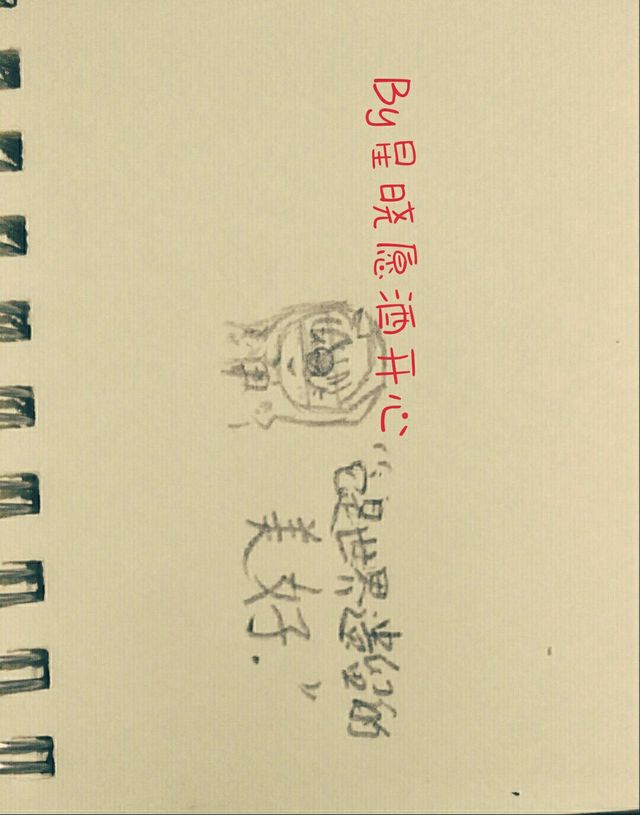 By星晓愿酒开心
“是世界的
美好.”